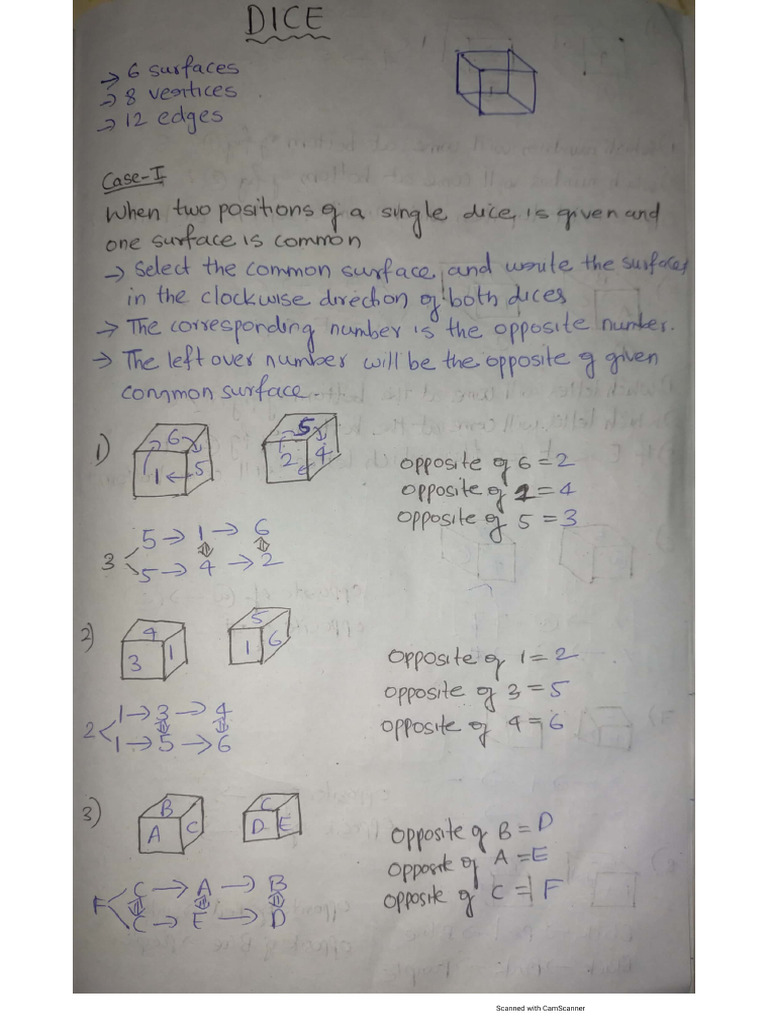 DICE
→ 6 surfaces
→ 8 vertices
→ 12 edges
Case-I
When two positions of a single dice, is given and
one surface is common
→ Select the common surface, and wriute the surfaces
in the clockwise direction of both dices
→ The corresponding number is the opposite number.
→ The left over number will be the opposite of given
common surface.
1) 6 1 5 5 2 4
opposite of 6 = 2
opposite of 1 = 4
opposite of 5 = 3
5 → 1 → 6
3
5 → 4 → 2
2) 4 3 1 5 1 6
opposite of 1 = 2
opposite of 3 = 5
opposite of 4 = 6
1 → 3 → 4
2
1 → 5 → 6
3) B A C C D E
opposite of B = D
opposite of A = E
opposite of C = F
C → A → B
F
C → E → D
Scanned with CamScanner